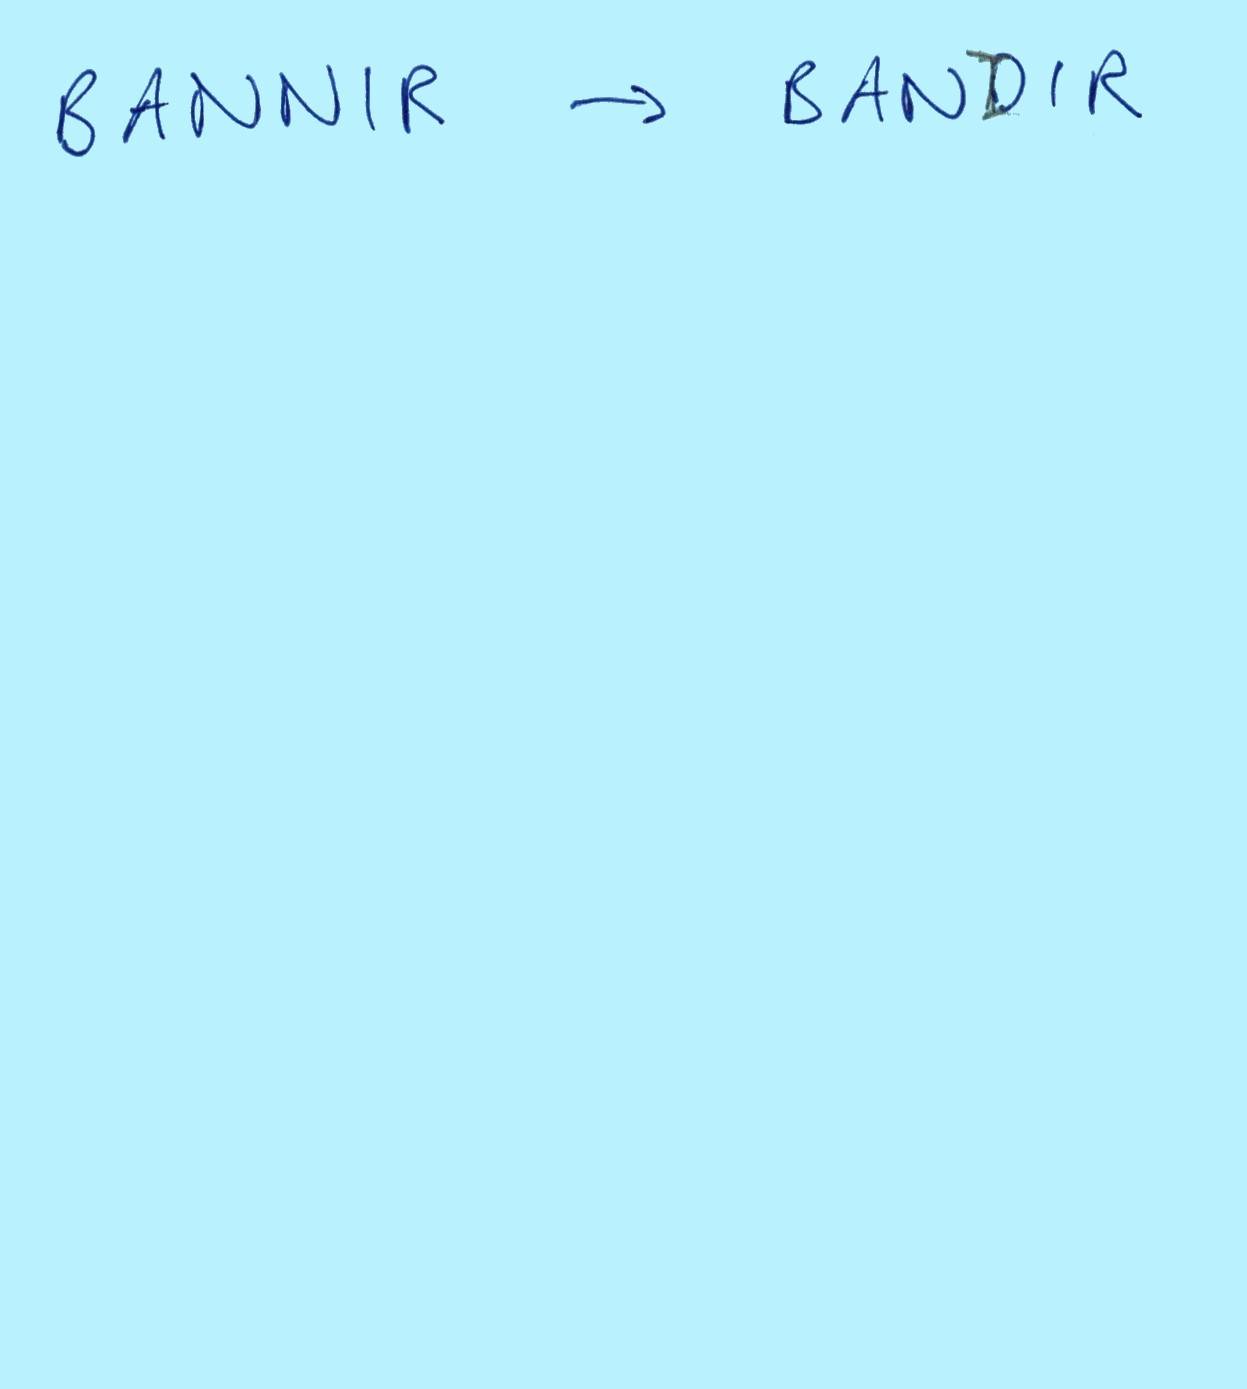 BANNIR → BANDIR